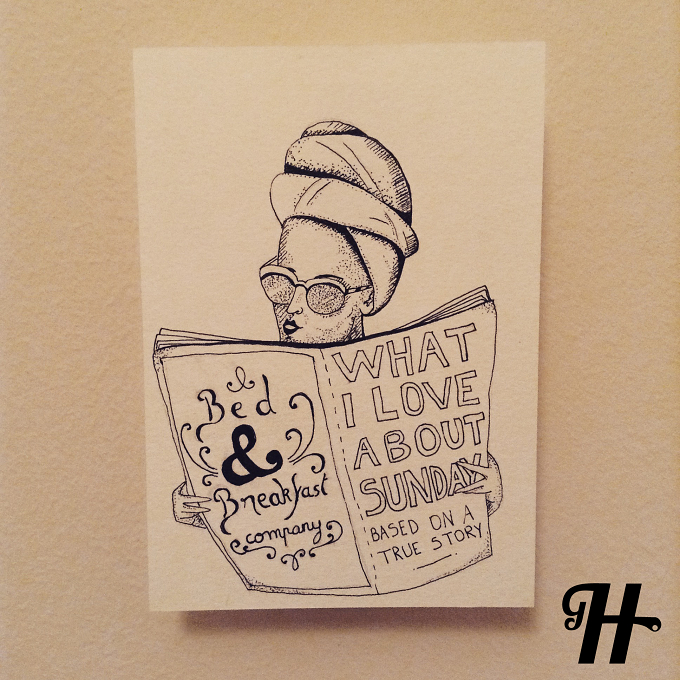 Bed
&
Breakfast
company
WHAT
I LOVE
ABOUT
SUNDAY
BASED ON A
TRUE STORY
gH